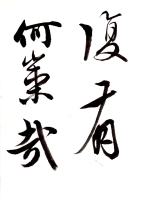 復有
何策哉